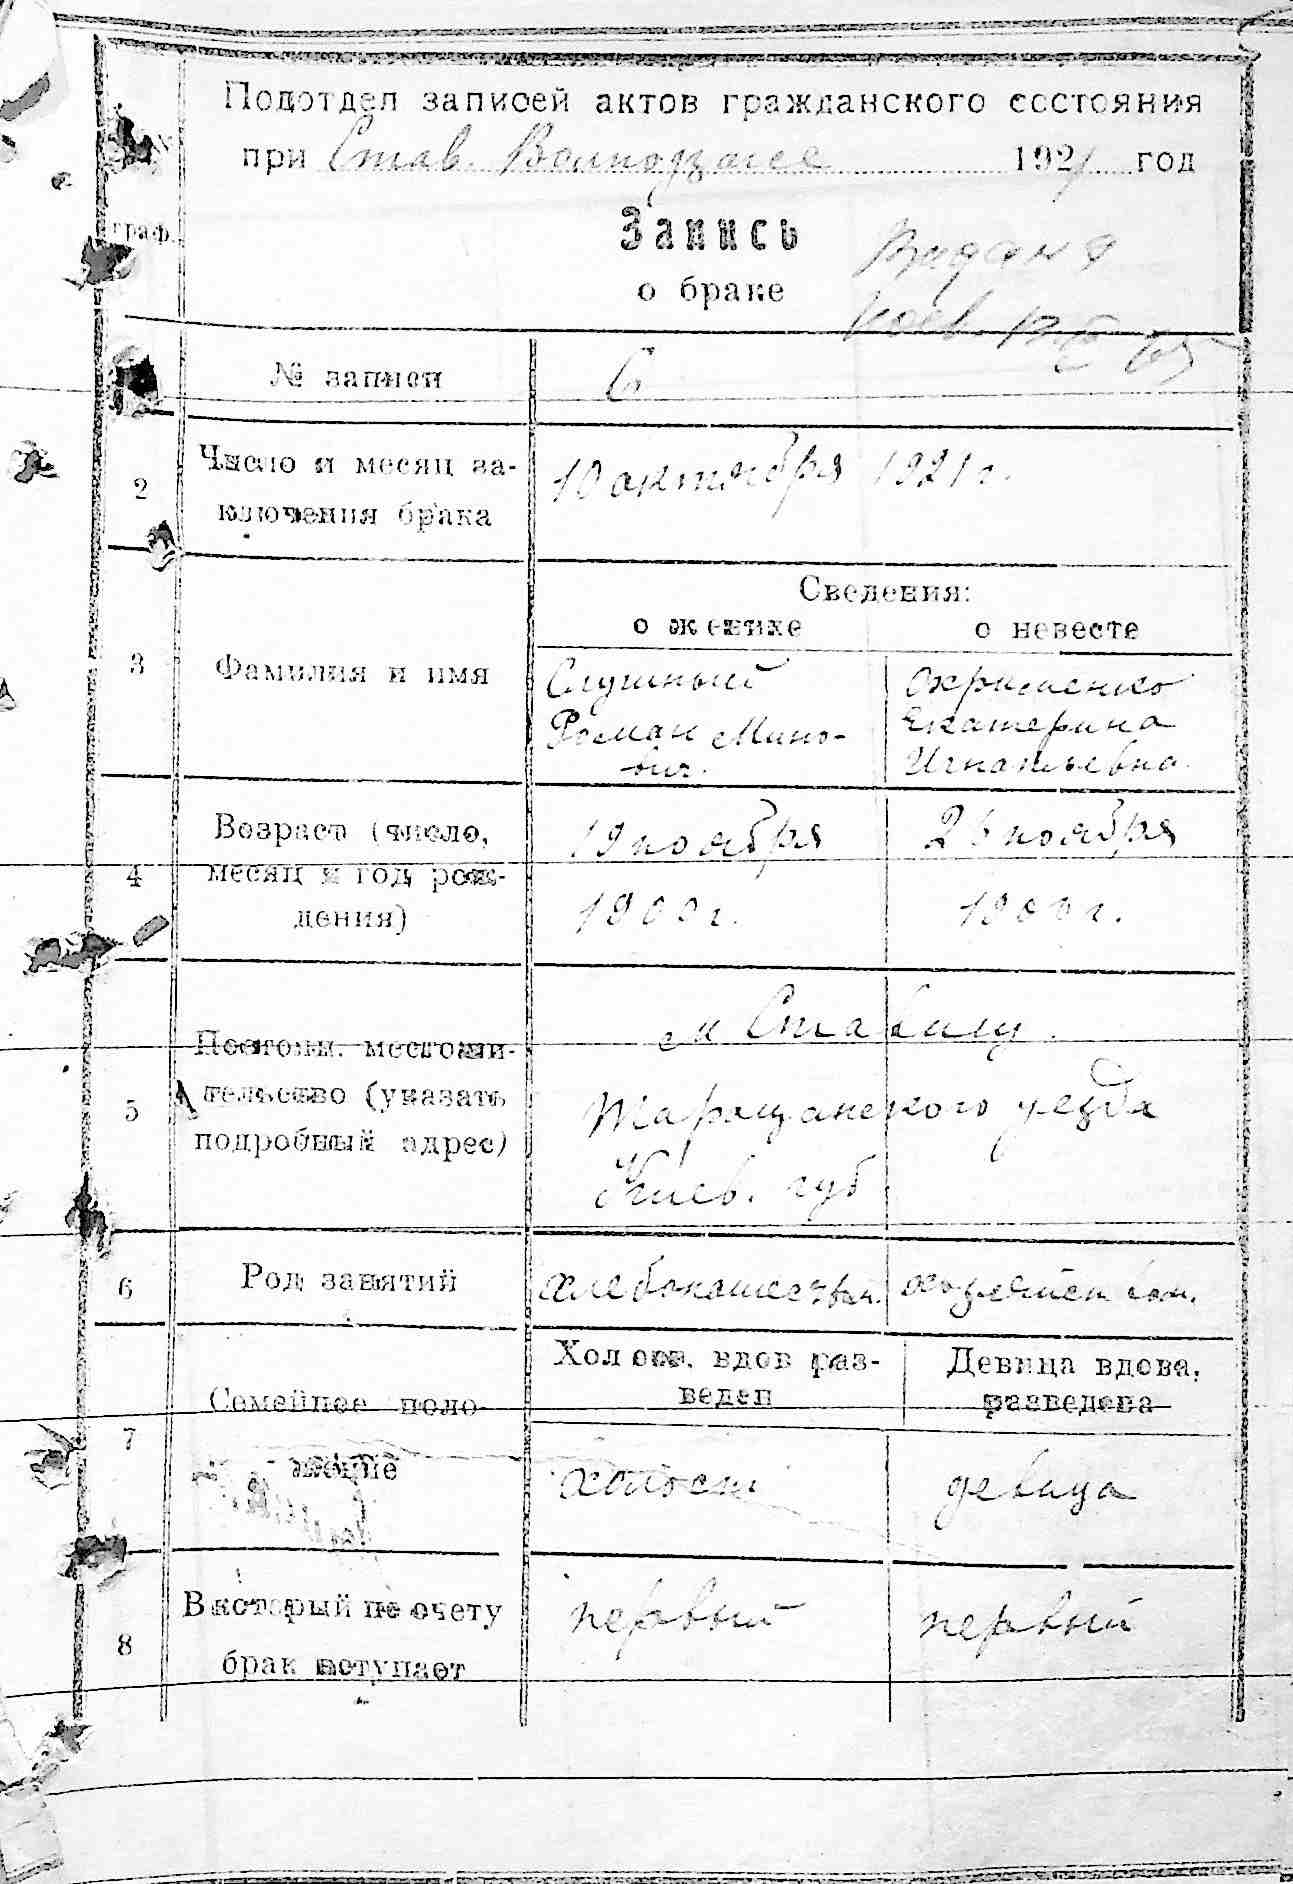 Подотдел записей актов гражданского состояния
при Став. 1921 год
граф.
Запись
о браке
№ записи
6
2
Число и месяц за-
ключения брака
10 октября 1921 г.
Сведения:
о женихе
о невесте
3
Фамилия и имя
Слушный
Роман Мино-
вич.
Охрименко
Екатерина
Игнатьевна
4
Возраст (число,
месяц и год рож-
дения)
19 ноября
1900 г.
ноября
1900 г.
5
Постоян. местожи-
тельство (указать
подробный адрес)
м Ставищ.
Таращанского уезда
Киев. губ
6
Род занятий
хлебопашеством.
7
Семейное поло-
жение
Холост. вдов раз-
веден
Девица вдова,
разведена
холост
девица
8
В который по счету
брак вступает
первый
первый